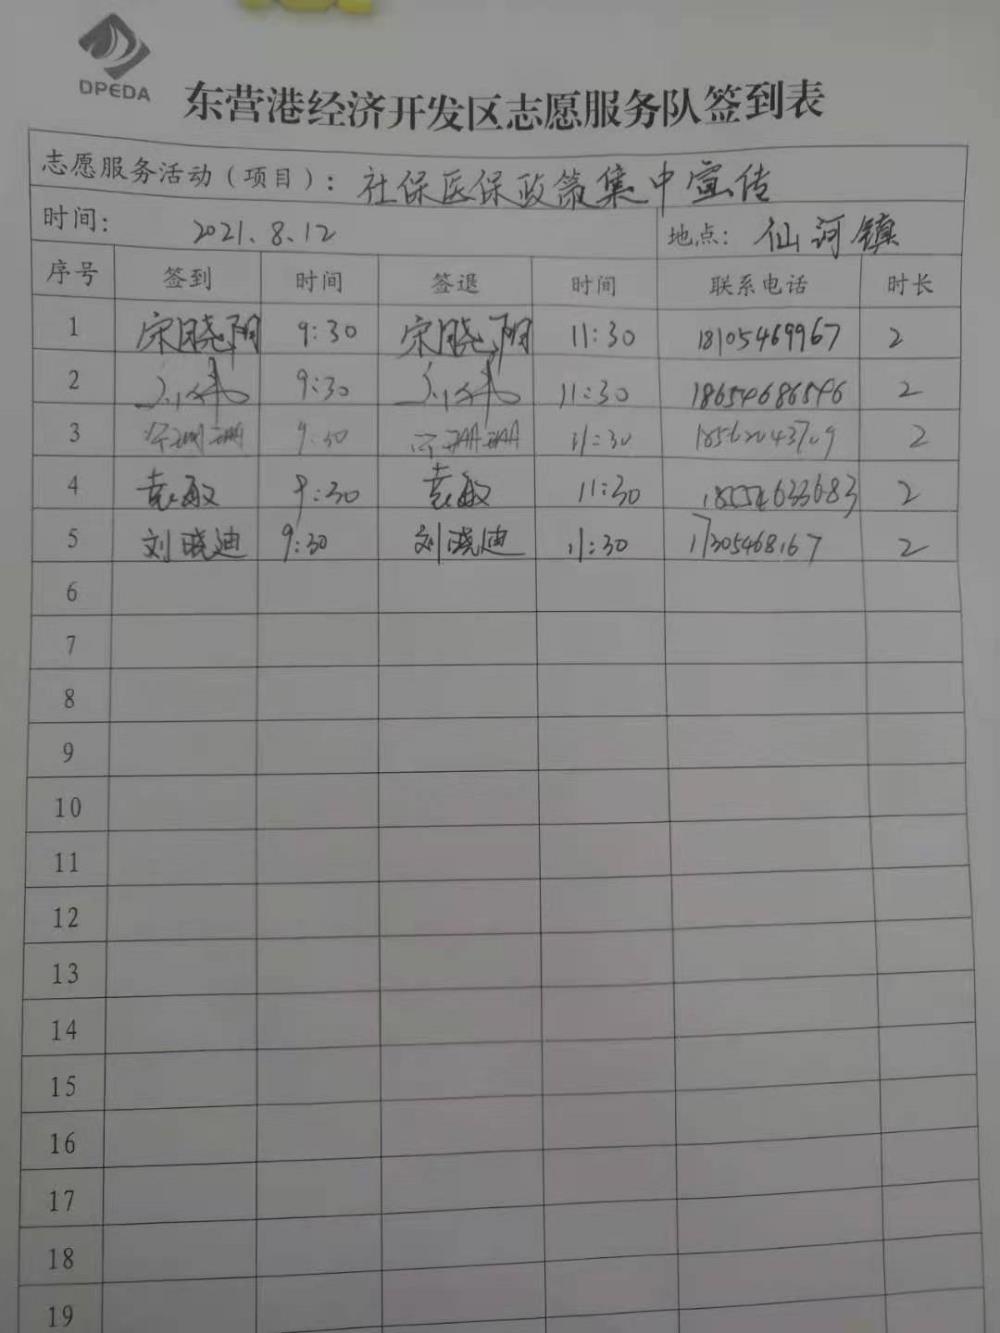 DPEDA
东营港经济开发区志愿服务队签到表
志愿服务活动（项目）：社保医保政策集中宣传
时间： 2021.8.12 地点：仙河镇
序号 签到 时间 签退 时间 联系电话 时长
1 宋晓阳 9:30 宋晓阳 11:30 18105469967 2
2 9:30 11:30 18654686546 2
3 9:30 11:30 2
4 袁敏 9:30 袁敏 11:30 18554633683 2
5 刘晓迪 9:30 刘晓迪 11:30 17305468167 2
6
7
8
9
10
11
12
13
14
15
16
17
18
19